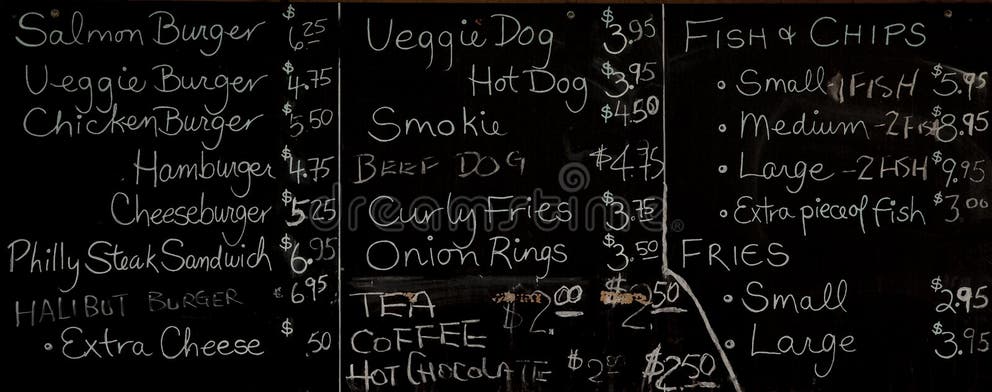 Salmon Burger $6.25
Veggie Burger $4.75
Chicken Burger $5.50
Hamburger $4.75
Cheeseburger $5.25
Philly Steak Sandwich $6.95
HALIBUT BURGER 6.95
• Extra Cheese $.50
Veggie Dog $3.95
Hot Dog $3.95
Smokie $4.50
BEEF DOG $4.75
Curly Fries $3.75
Onion Rings $3.50
TEA $2.00 $2.50
COFFEE
HOT CHOCOLATE $2.00 $2.50
FISH & CHIPS
• Small-1 FISH $5.95
• Medium-2 FISH $8.95
• Large-2 FISH $9.95
• Extra piece of fish $3.00
FRIES
• Small $2.95
• Large $3.95
dreamstime